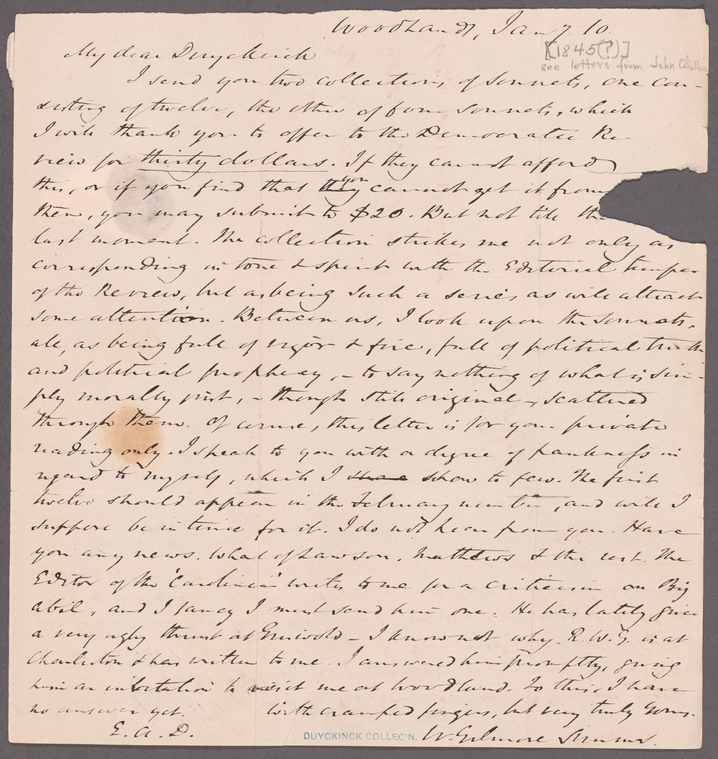 Woodlands, Jany 10.
[1845(?)]
see letters from John O'Sullivan
My dear Duyckinck
I send you two collections of sonnets, one con-
sisting of twelve, the other of four sonnets, which
I will thank you to offer to the Democratic Re-
view for thirty dollars. If they cannot afford
this, or if you find that they you cannot get it from
them, you may submit to $20. But not till the
last moment. The collection strikes me not only as
corresponding in tone & spirit with the Editorial temper
of the Review, but as being such a series as will attract
some attention. Between us, I look upon the sonnets,
all, as being full of vigor & fire, full of political truth
and political prophecy, – to say nothing of what is sim-
ply morally just, – though still original – scattered
through them. Of course, this letter is for your private
reading only. I speak to you with a degree of frankness in
regard to myself, which I share show to few. The first
twelve should appear in the February number, and will I
suppose be in time for it. I do not hear from you. Have
you any news. What of Lawson, Mathews & the rest. The
Editor of the 'Carolinian' writes to me for a criticism on Big
Abel, and I fancy I must send him one. He has lately given
a very ugly thrust at Griswold – I know not why. R. W. G. is at
Charleston & has written to me. I answered him promptly, giving
him an invitation to visit me at Woodland. To this, I have
no answer yet. With cramped fingers, but very truly Yours.
E. A. D. W. Gilmore Simms.
DUYCKINCK COLLEC'N.